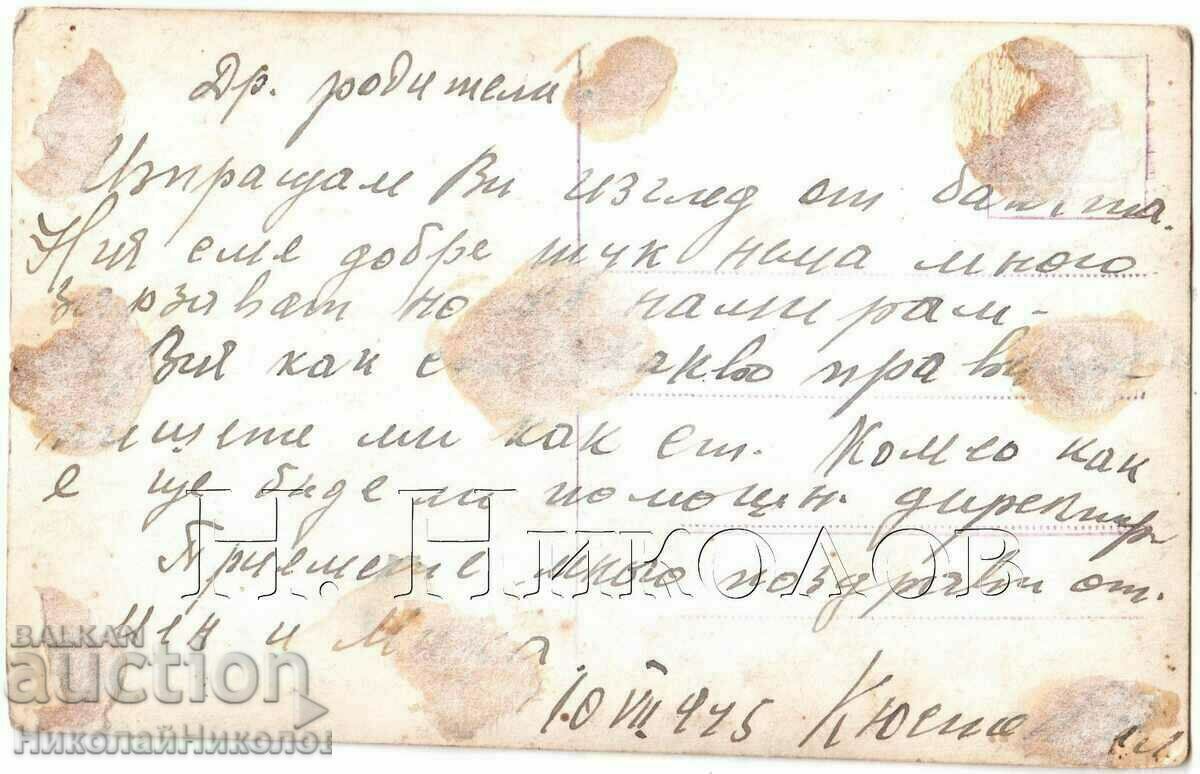 Др. родители
Изпращам Ви изглед от банята.
Ния сме добре тук няма много
но намирам-
Вия как какво прави
пишете ми как ст. Комсо как
е ще бъде ли помощн. директор
Приемете много поздрави от.
мен и
10 VIII 945 Кюсте
Н. Николов
BALKAN
auction
НиколайНиколов